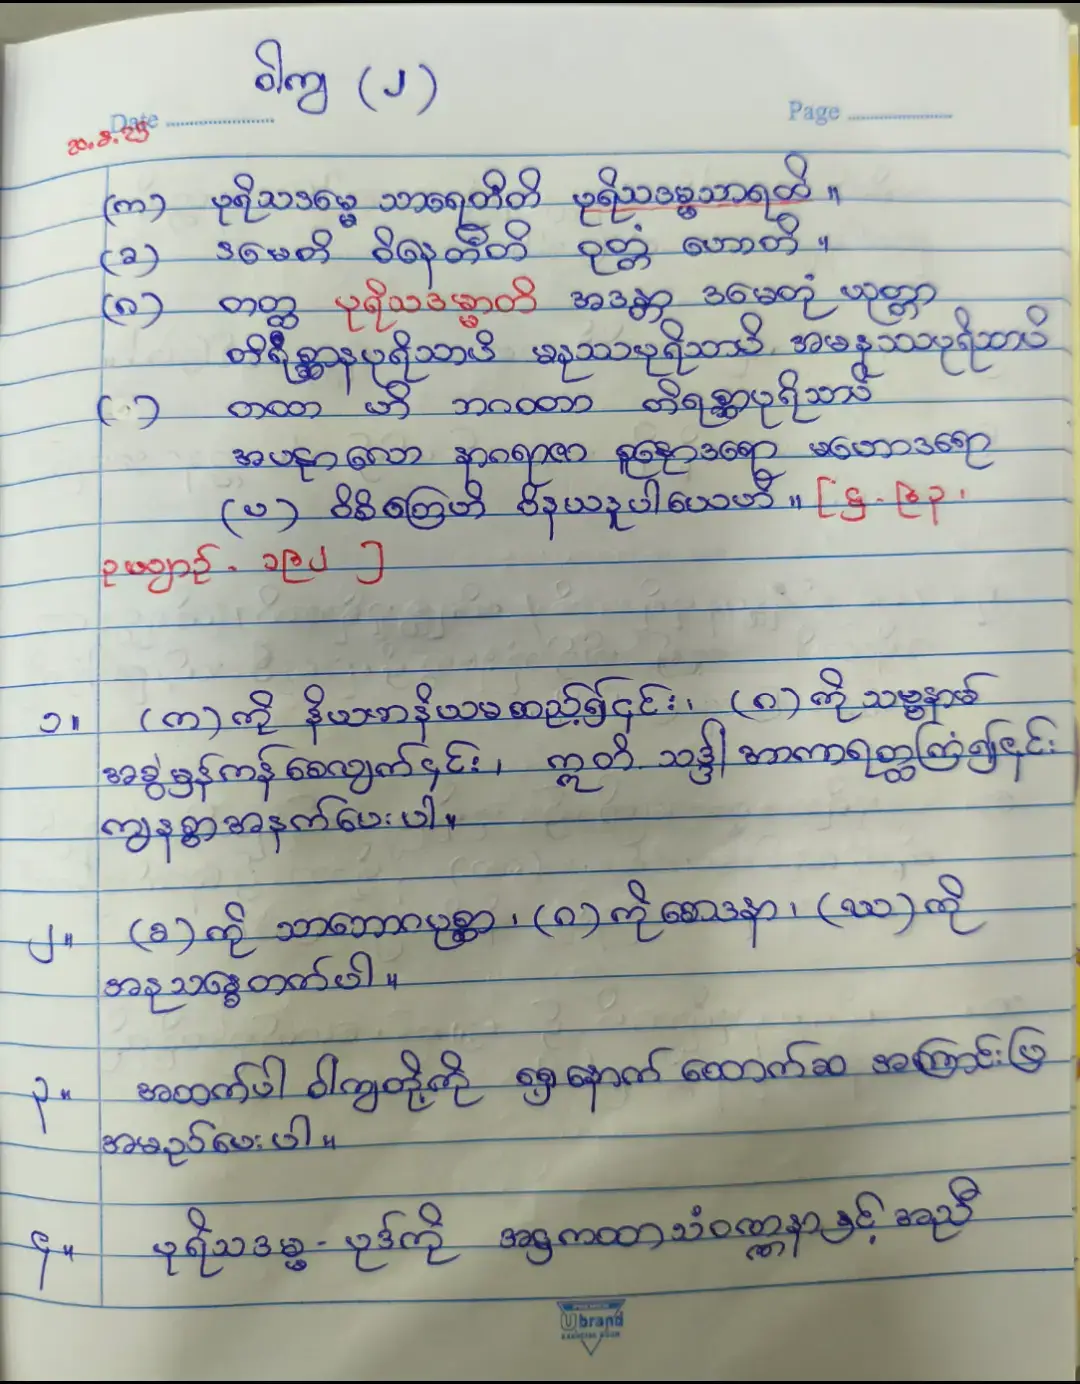 ဝါကျ (၂)
Date
Page
၃၀.၈.၂၅
(က) ပုရိသဒမ္မေ သာရေတီတိ ပုရိသဒမ္မသာရထိ ။
(ခ) ဒမေတိ ဝိနေတီတိ ဝုတ္တံ ဟောတိ ။
(ဂ) တတ္ထ ပုရိသဒမ္မာတိ အဒန္တာ ဒမေတုံ ယုတ္တာ
တိရစ္ဆာနပုရိသာပိ မနုဿပုရိသာပိ အမနုဿပုရိသာပိ
တထာ ဟိ ဘဂဝတာ တိရစ္ဆာပုရိသာပိ
အပလာလော နာဂရာဇာ စူဠောဒရော မဟောဒရော
(ပ) ဝိစိတြေဟိ ဝိနယနူပါယေဟိ ။ [ဋ္ဌ - ၉၃၊
ဥယျာဉ် - ၁၉၂ ]
၁။ (က) ကို နိယမာနိယမထည့်၍၎င်း၊ (ဂ) ကို သမ္ဗန္ဓ
အဖွဲ့မှန်ကန်စေလျက်၎င်း၊ ဣတိ သဒ္ဒါ အာကာရတ္ထကြံ၍၎င်း
ကျနစွာအနက်ပေးပါ။
၂။ (ခ) ကို သာဘောဂပုစ္ဆာ၊ (ဂ) ကို စောဒနာ၊ (ဃ) ကို
အနုသန္ဓေတက်ပါ ။
၃။ အထက်ပါ ဝါကျတို့ကို ရှေ့နောက် ထောက်ဆ အကြောင်းပြ
အမည်ပေးပါ ။
၄။ ပုရိသဒမ္မ - ပုဒ်ကို အဋ္ဌကထာသံဝဏ္ဏနာနှင့် အညီ
PREMIER
U brand
EXERCISE BOOK